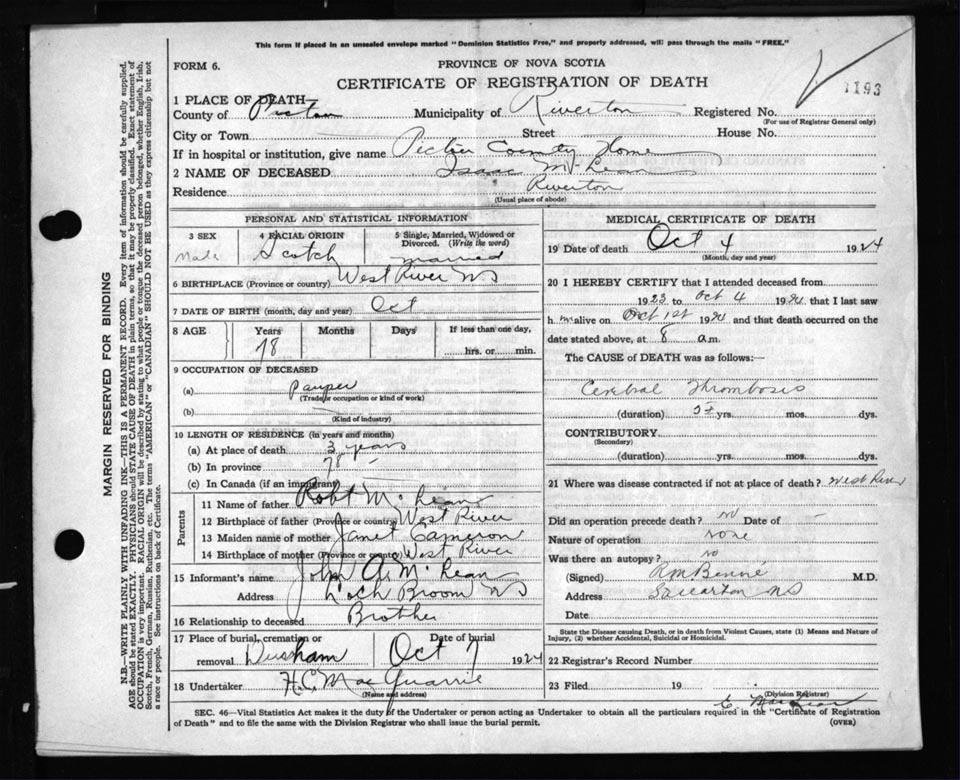 This form if placed in an unsealed envelope marked "Dominion Statistics Free," and properly addressed, will pass through the mails "FREE."
FORM 6.
PROVINCE OF NOVA SCOTIA
CERTIFICATE OF REGISTRATION OF DEATH
1193
1 PLACE OF DEATH
County of Pictou Municipality of Riverton Registered No.
(For use of Registrar General only)
City or Town Street House No.
If in hospital or institution, give name Pictou County Home
2 NAME OF DECEASED Isaac McLean
Residence Riverton
(Usual place of abode)
PERSONAL AND STATISTICAL INFORMATION
3 SEX 4 RACIAL ORIGIN 5 Single, Married, Widowed or Divorced. (Write the word)
Male Scotch married
6 BIRTHPLACE (Province or country) West River NS
7 DATE OF BIRTH (month, day and year) Oct
8 AGE Years Months Days If less than one day,
78 hrs. or min.
9 OCCUPATION OF DECEASED
(a) Pauper
(Trade, occupation or kind of work)
(b)
(Kind of industry)
10 LENGTH OF RESIDENCE (in years and months)
(a) At place of death 3 years
(b) In province 78 -
(c) In Canada (if an immigrant)
Parents
11 Name of father Robt McLean
12 Birthplace of father (Province or country) West River
13 Maiden name of mother Janet Cameron
14 Birthplace of mother (Province or country) West River
15 Informant's name John A. McLean
Address Loch Broom NS
16 Relationship to deceased Brother
17 Place of burial, cremation or removal Durham
Date of burial Oct 7 1924
18 Undertaker H.C. MacQuarrie
(Name and address)
MEDICAL CERTIFICATE OF DEATH
19 Date of death Oct 4 1924
(Month, day and year)
20 I HEREBY CERTIFY that I attended deceased from
1923 to Oct 4 1924 that I last saw
him alive on Oct 1st 1924 and that death occurred on the
date stated above, at 8 a.m.
The CAUSE of DEATH was as follows:—
Cerebral Thrombosis
(duration) yrs. mos. dys.
CONTRIBUTORY
(Secondary)
(duration) yrs. mos. dys.
21 Where was disease contracted if not at place of death? West River
Did an operation precede death? no Date of -
Nature of operation none
Was there an autopsy? no
(Signed) M.D.
Address Stellarton NS
Date
State the Disease causing Death, or in death from Violent Causes, state (1) Means and Nature of
Injury, (2) whether Accidental, Suicidal or Homicidal.
22 Registrar's Record Number
23 Filed 19
(Division Registrar)
SEC. 46—Vital Statistics Act makes it the duty of the Undertaker or person acting as Undertaker to obtain all the particulars required in the "Certificate of Registration
of Death" and to file the same with the Division Registrar who shall issue the burial permit. (OVER)
MARGIN RESERVED FOR BINDING
N.B.—WRITE PLAINLY WITH UNFADING INK—THIS IS A PERMANENT RECORD. Every item of information should be carefully supplied.
AGE should be stated EXACTLY. PHYSICIANS should STATE CAUSE OF DEATH in plain terms, so that it may be properly classified. Exact statement of
OCCUPATION is very important. RACIAL ORIGIN will be described by stating to what people or tongue the deceased person belonged, whether English, Irish,
Scotch, French, German, Russian, Ruthenian, etc. The terms "AMERICAN" or "CANADIAN" SHOULD NOT BE USED as they express citizenship but not
a race or people. See instructions on back of Certificate.